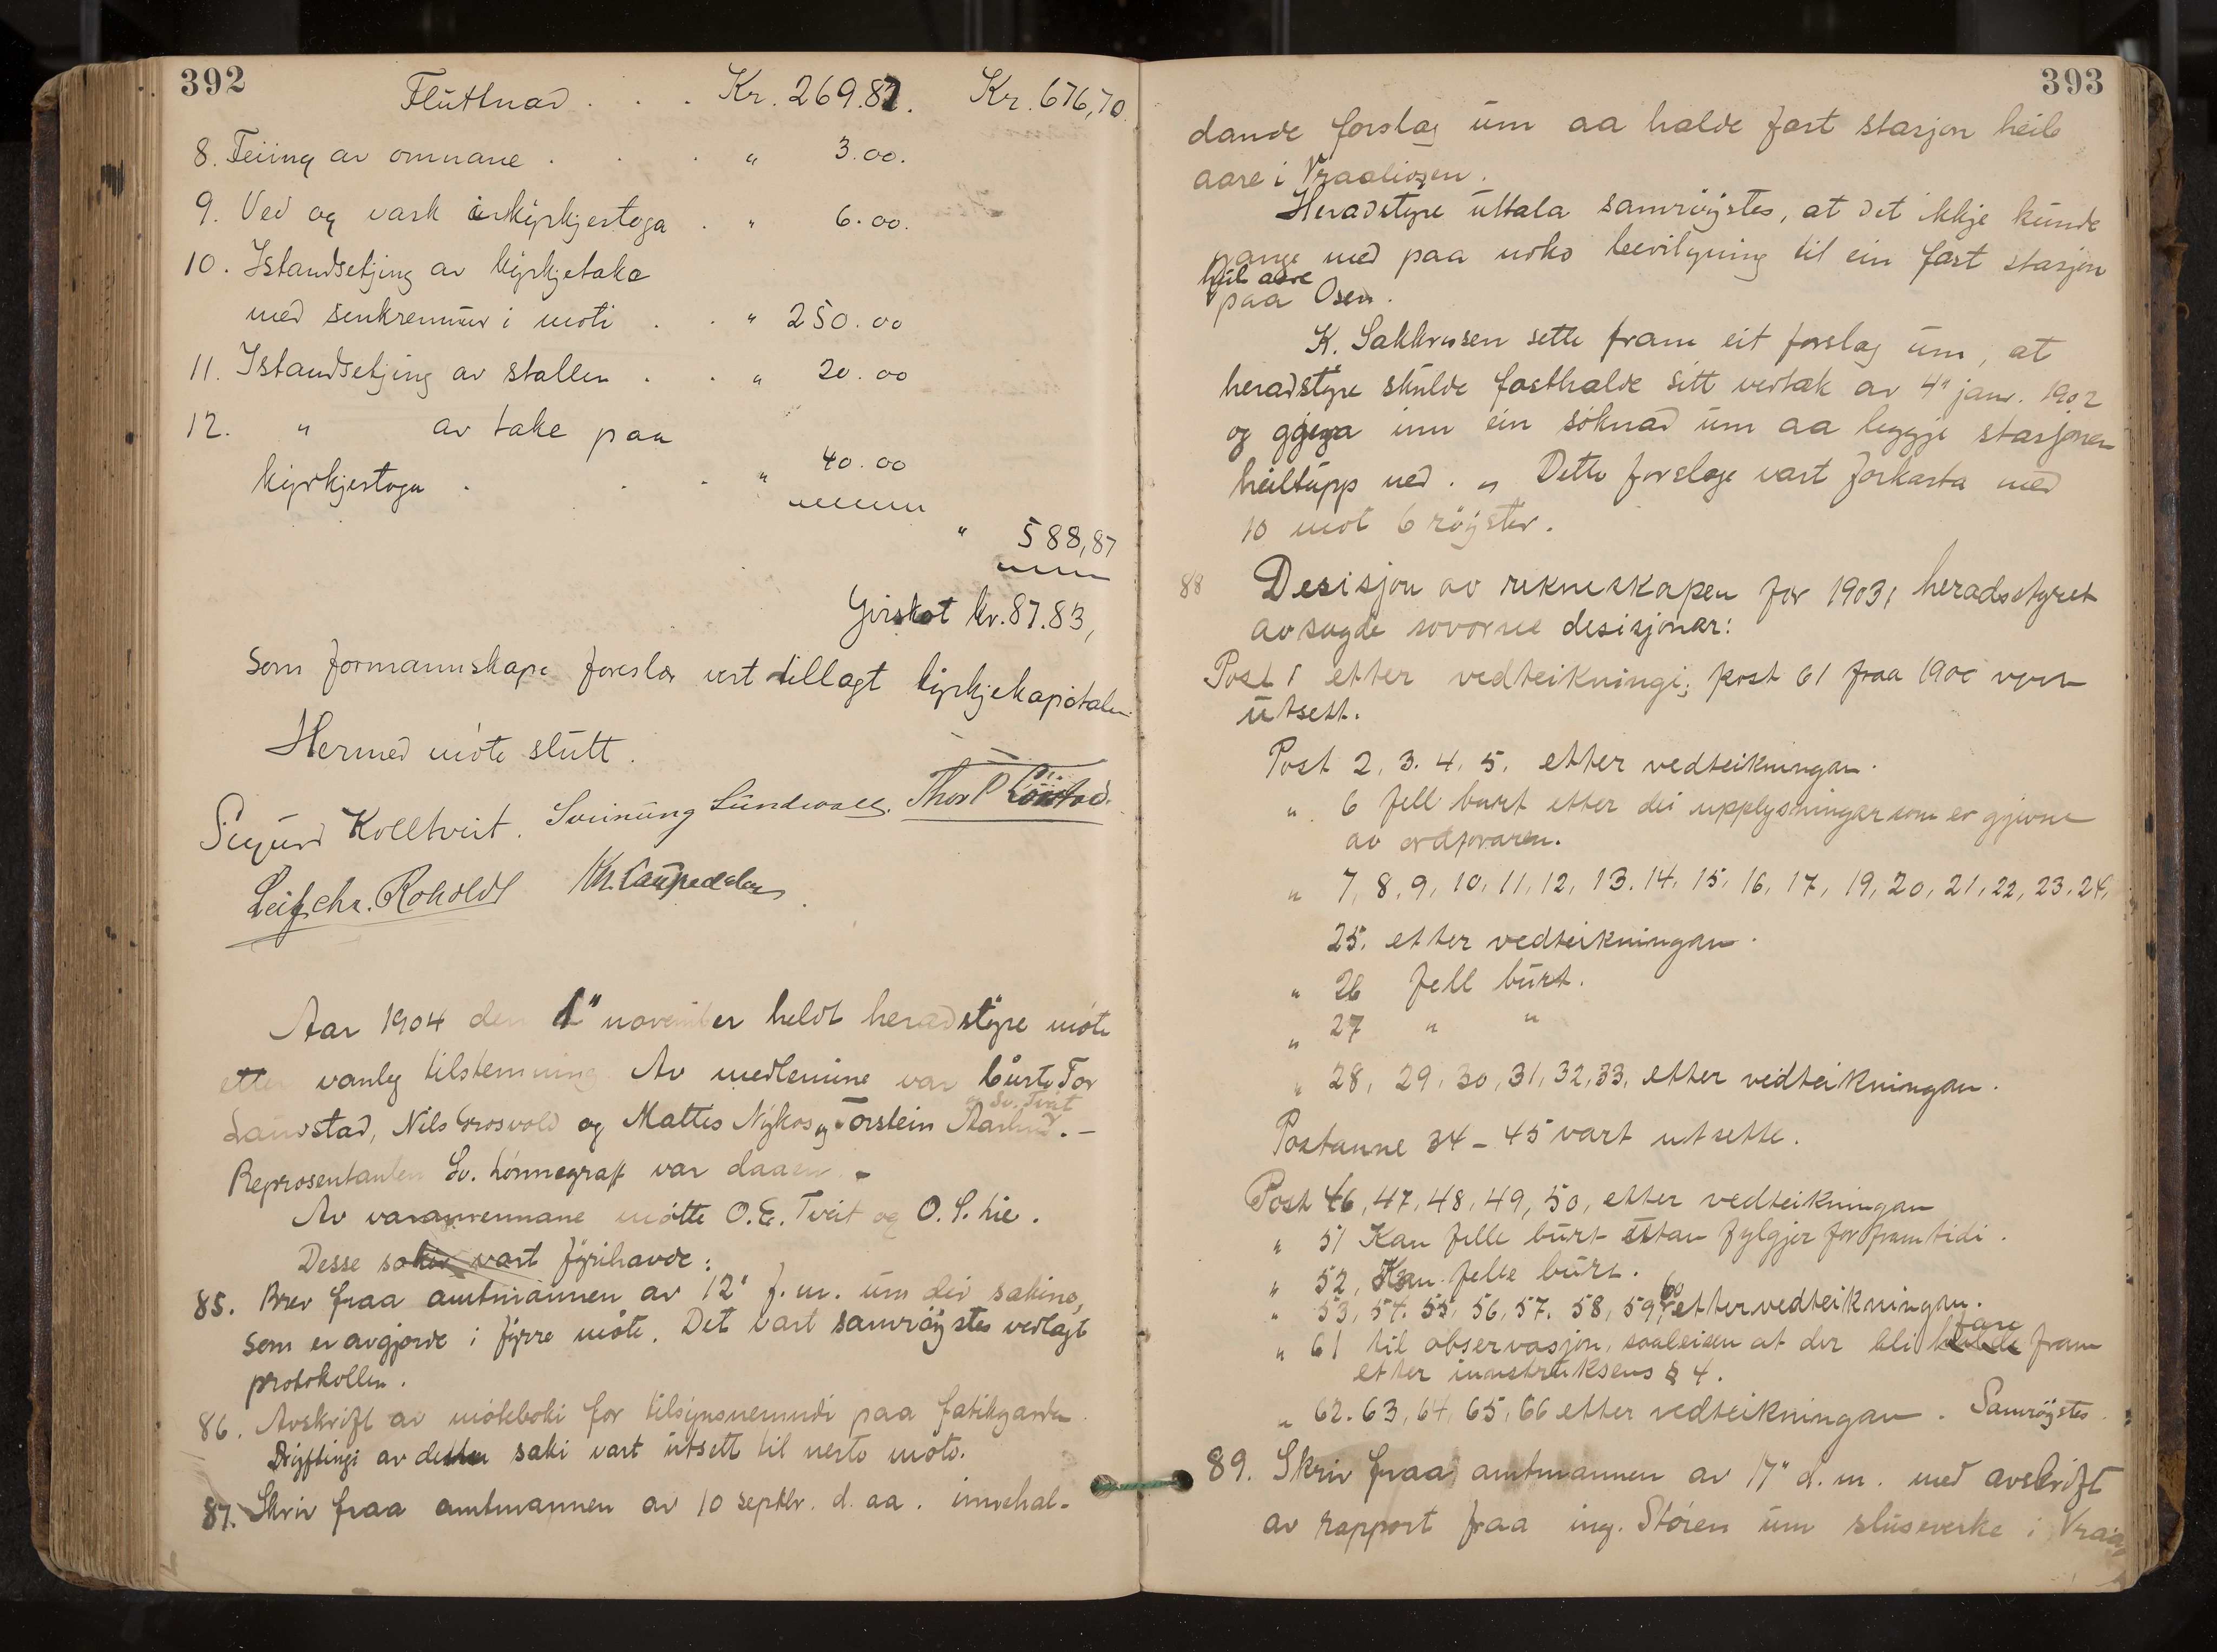 392
Fluttnad . . . Kr. 269.87. Kr. 676,70.
8. Feiing av omnane . . . " 3.00.
9. Ved og vask i kyrkjestoga . " 6.00.
10. Istandsetjing av kyrkjetake
med senkremur i moti . . " 250.00
11. Istandsetjing av stallen . . " 20.00
12. " av take paa
kyrkjestoga . . . " 40.00
" 588,87
Yvirskot kr. 87.83,
som formannskape foreslær vert tillagt kyrkjekapitalen.
Hermed møte slutt.
Sigurd Kolltveit. Sveinung Sundvall. Thor P
Leif Chr. Roholdt
Aar 1904 den 1" november heldt heradstyre møte
etter vanleg tilstemning. Av medlemine var burte Tor
og Sv. Tveit
Lauvstad, Nils Grosvold og Mattes Nykos og Torstein Aarhus. –
Representanten Sv. Lønnegraff var daaen. –
Av varamennane møtte O. E. Tveit og O. S. Lie.
Desse saker vart fyrihavde:
85. Brev fraa amtmannen av 12" f. m. um dei sakine,
som er avgjorde i fyrre møte. Det vart samrøystes vedlagt
protokollen.
86. Avskrift av møteboki for tilsynsnemndi paa fatikgarden
Drøftingi av denne saki vart utsett til neste møte.
87. Skriv fraa amtmannen av 10 septbr. d. aa. innehal-
393
dande forslag um aa halde fast stasjon heile
aare i Vraaliosen.
Heradstyre uttala samrøystes, at det ikkje kunde
gange med paa noko bevilgning til ein fast stasjon
heile aare
paa Osen.
K. Sakkrusen sette fram eit forslag um, at
heradstyre skulde fasthalde sitt vedtak av 4" jan. 1902
og gjeva inn ein søknad um aa leggje stasjonen
heiltupp ned. „ Dette forslage vart forkasta med
10 mot 6 røyster.
88 Desisjon av rekneskapen for 1903, heradsstyret
avsagde sovorne desisjonar:
Post 1 etter vedteikningi; post 61 fraa 1900 vert
utsett.
Post 2, 3. 4. 5. etter vedteikningan.
" 6 fell burt etter dei upplysningar som er gjevne
av ordføraren.
" 7, 8, 9, 10, 11, 12, 13. 14. 15. 16, 17, 19, 20, 21, 22, 23, 24,
25. etter vedteikningan.
" 26 fell burt.
" 27 " "
" 28, 29, 30, 31, 32, 33, etter vedteikningan.
Postanne 34 – 45 vart utsette.
Post 46, 47, 48, 49, 50, etter vedteikningan
" 51 Kan felle burt utan fylgjer for framtidi.
" 52, Kan felle burt.
60
" 53, 54. 55, 56, 57. 58, 59, etter vedteikningan.
fare
" 61 til observasjon, soaleisen at der bli fram
etter innstruksens § 4.
" 62. 63, 64, 65, 66 etter vedteikningan. Samrøystes.
89. Skriv fraa amtmannen av 17" d. m. med avskrift
av rapport fraa ing. Støren um sluseverke i Vraa-